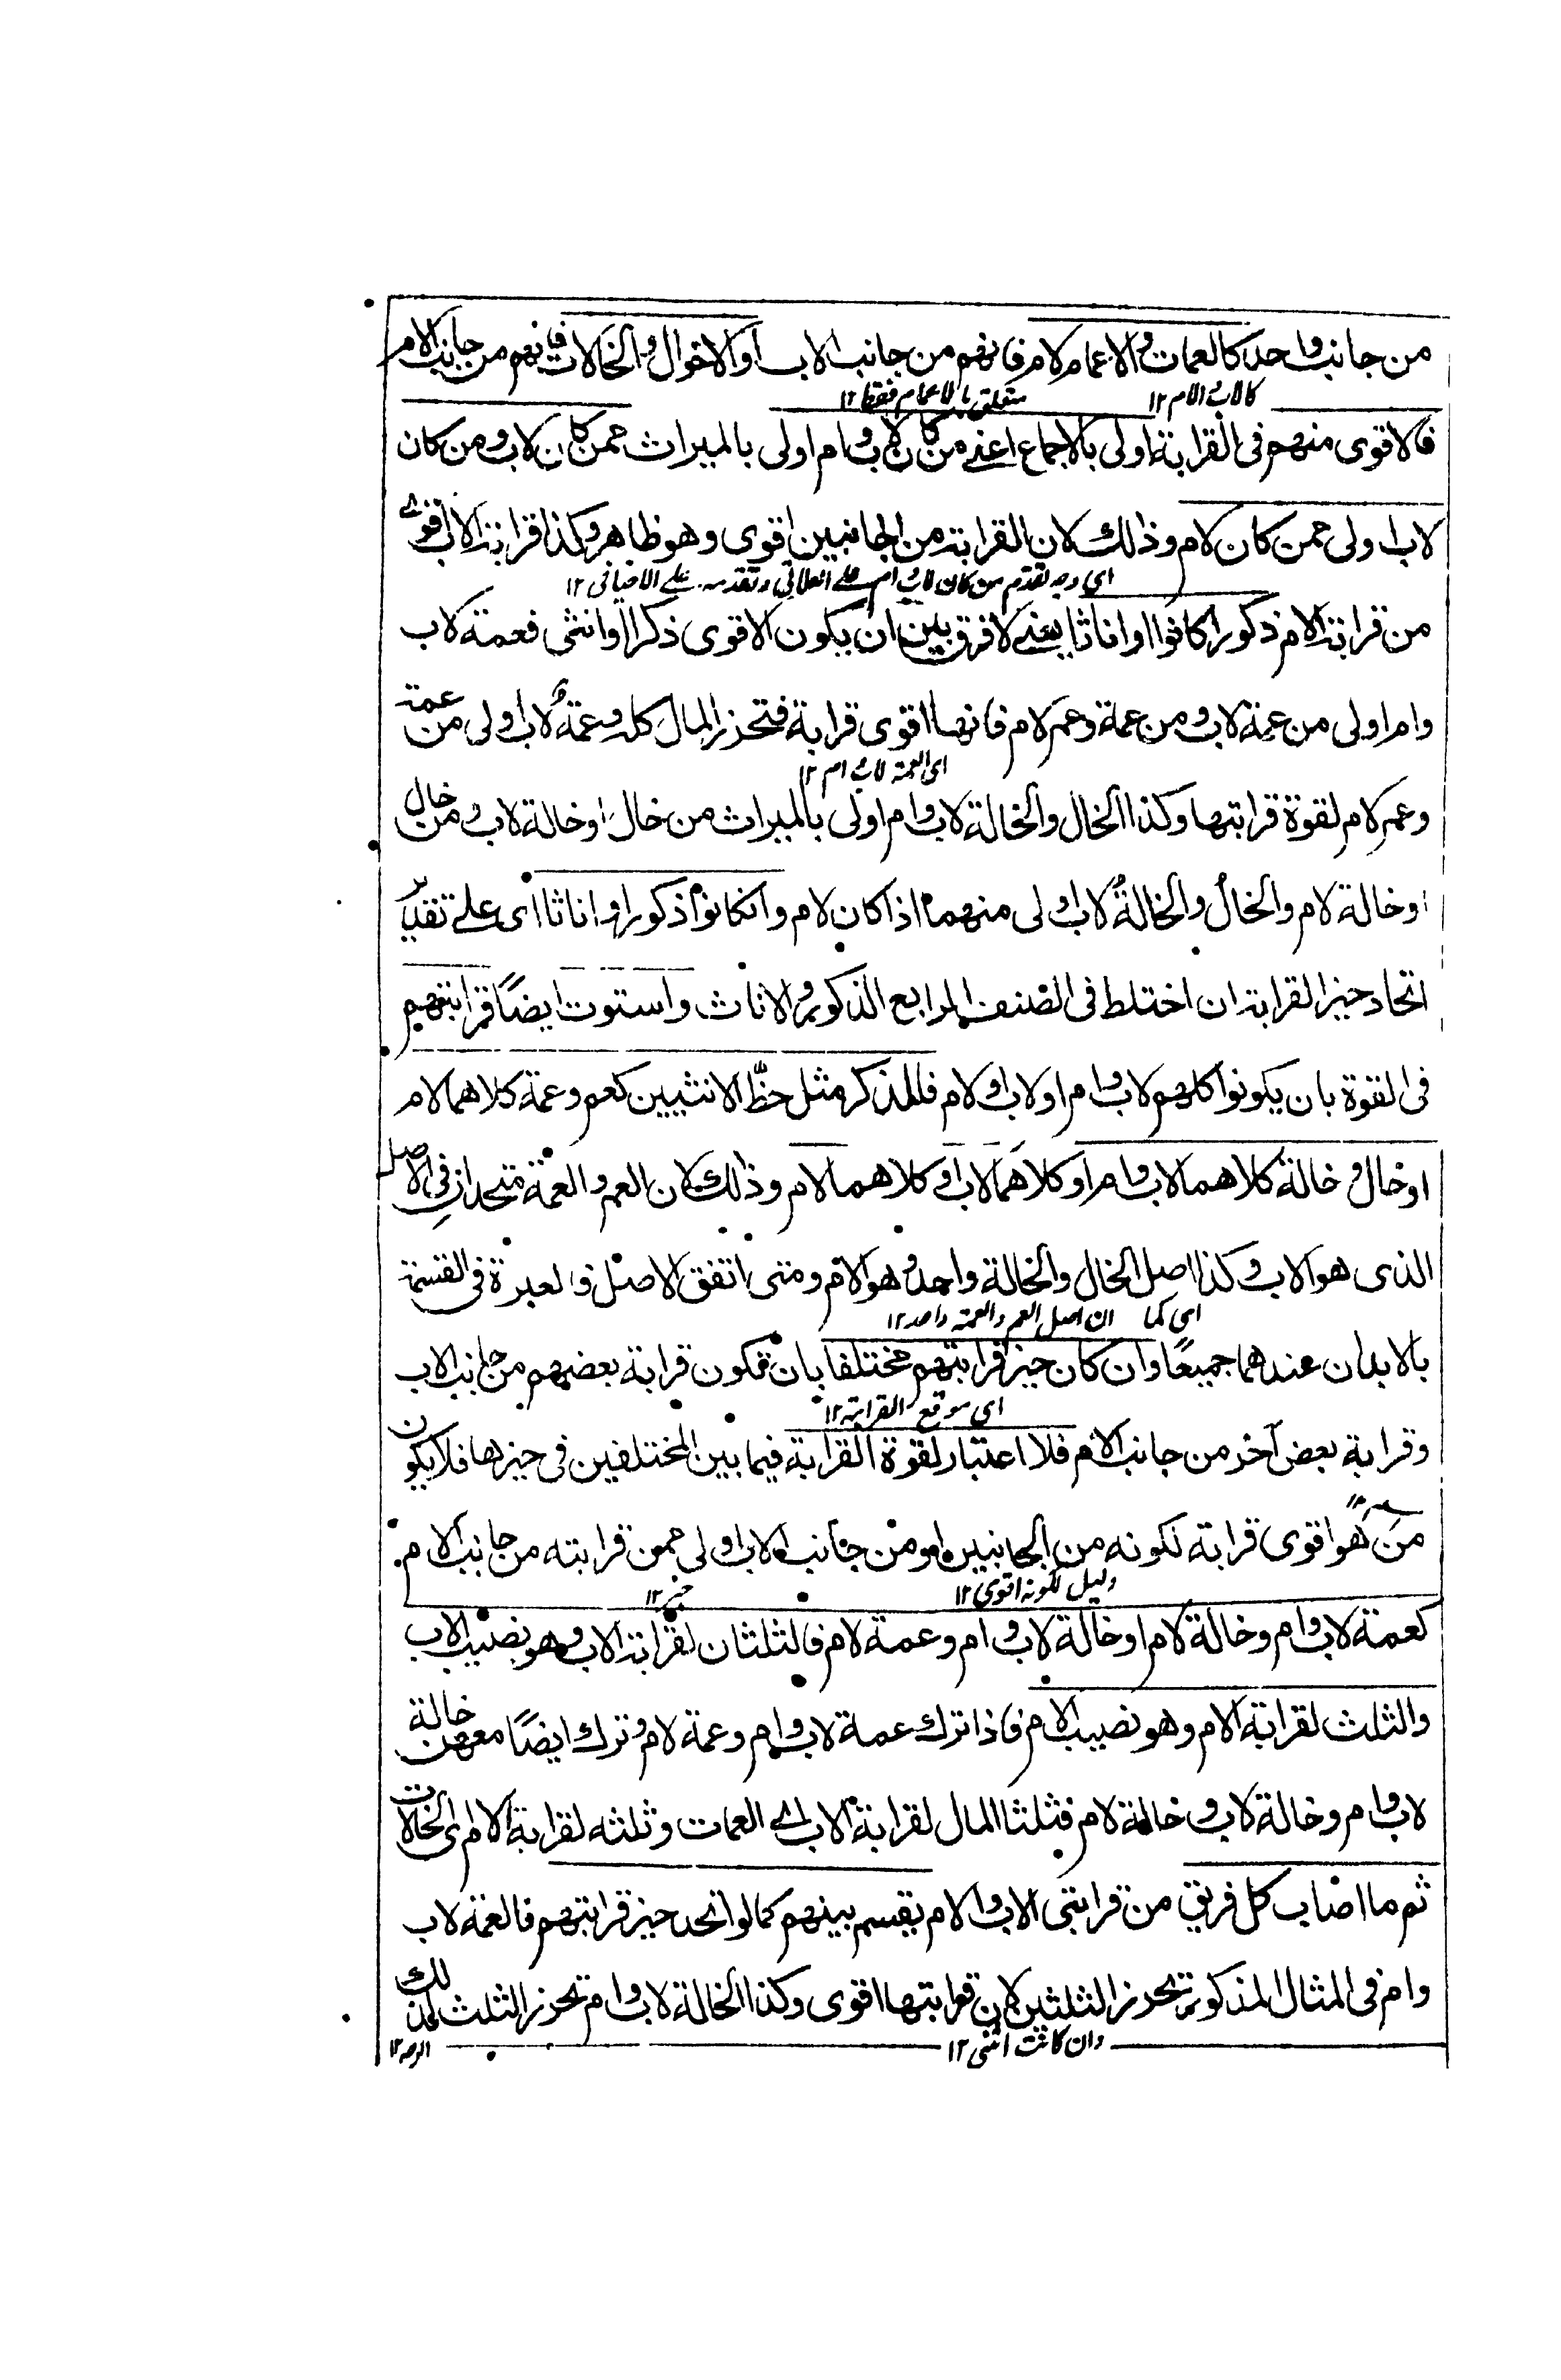 من جانب واحد كالعمات والاعمام لام فانهم من جانب الاب او الاخوال والخالات فانهم من جانب الام
كالاب والام ١٢ متعلق بالاعمام فقط ١٢
فالاقوى منهم فى القرابة اولى بالاجماع اعنے من كان لاب وام اولى بالميراث ممن كان لاب ومن كان
لاب اولى ممن كان لام وذالك لان القرابة من الجانبين اقوى وهو ظاهر وكذا قرابة الاب اقوے
اى وجه تقدم من كان لاب وام على العلاتى وتقدمه على الاخيافى ١٢
من قرابة الام ذكورا كانوا او اناثا يعنے لا فرق بين ان يكون الاقوى ذكرا او انثى فعمة لاب
وام اولى من عمة لاب ومن عمة وعم لام فانها اقوى قرابة فتحرز المال كله وعمة لاب اولى من عمة
اى العمة لاب وام ١٢
وعم لام لقوة قرابتها وكذا الخال والخالة لاب وام اولى بالميراث من خال او خالة لاب ومن خال
او خالة لام والخال والخالة لاب اولى منهما اذا كان لام وانكانوا ذكورا واناثا اى على تقدير
اتحاد حيز القرابة ان اختلط فى الصنف الرابع الذكور والاناث واستوت ايضًا قرابتهم
فى القوة بان يكونوا كلهم لاب وام او لاب او لام فللذكر مثل حظّ الانثيين كعم وعمة كلاهما لام
او خال و خالة كلاهما لاب وام او كلاهما لاب او كلاهما لام وذالك لان العم والعمة متحدان فى الاصل
الذى هو الاب وكذا اصل الخال والخالة واحد وهو الام ومتى اتفق الاصل فالعبرة فى القسمة
اى كما ان اصل العم والعمة واحد ١٢
بالابدان عندهما جميعًا وان كان حيز قرابتهم مختلفا بان تكون قرابة بعضهم من جانب الاب
اى موقع القرابة ١٢
وقرابة بعض آخر من جانب الام فلا اعتبار لقوة القرابة فيما بين المختلفين فى حيزها فلا يكون
من هو اقوى قرابة لكونه من الجانبين او من جانب الاب اولى ممن قرابته من جانب الام
دليل لكونه اقوى ١٢ خبر ١٢
كعمة لاب وام وخالة لام او خالة لاب وام وعمة لام فالثلثان لقرابة الاب وهو نصيب الاب
والثلث لقرابة الام وهو نصيب الام فاذا ترك عمة لاب وام وعمة لام وترك ايضًا معهن خالة
لاب وام وخالة لاب وخالة لام فثلثا المال لقرابة الاب اے العمات وثلثه لقرابة الام اى الخالات
ثم ما اصاب كل فريق من قرابتى الاب والام يقسم بينهم كما لو اتحد حيز قرابتهم فالعمة لاب
وام فى المثال المذكور تحرز الثلثين لان قرابتها اقوى وكذا الخالة لاب وام تحرز الثلث لذلك
وان كانت انثى ١٢ الوجه ١٢